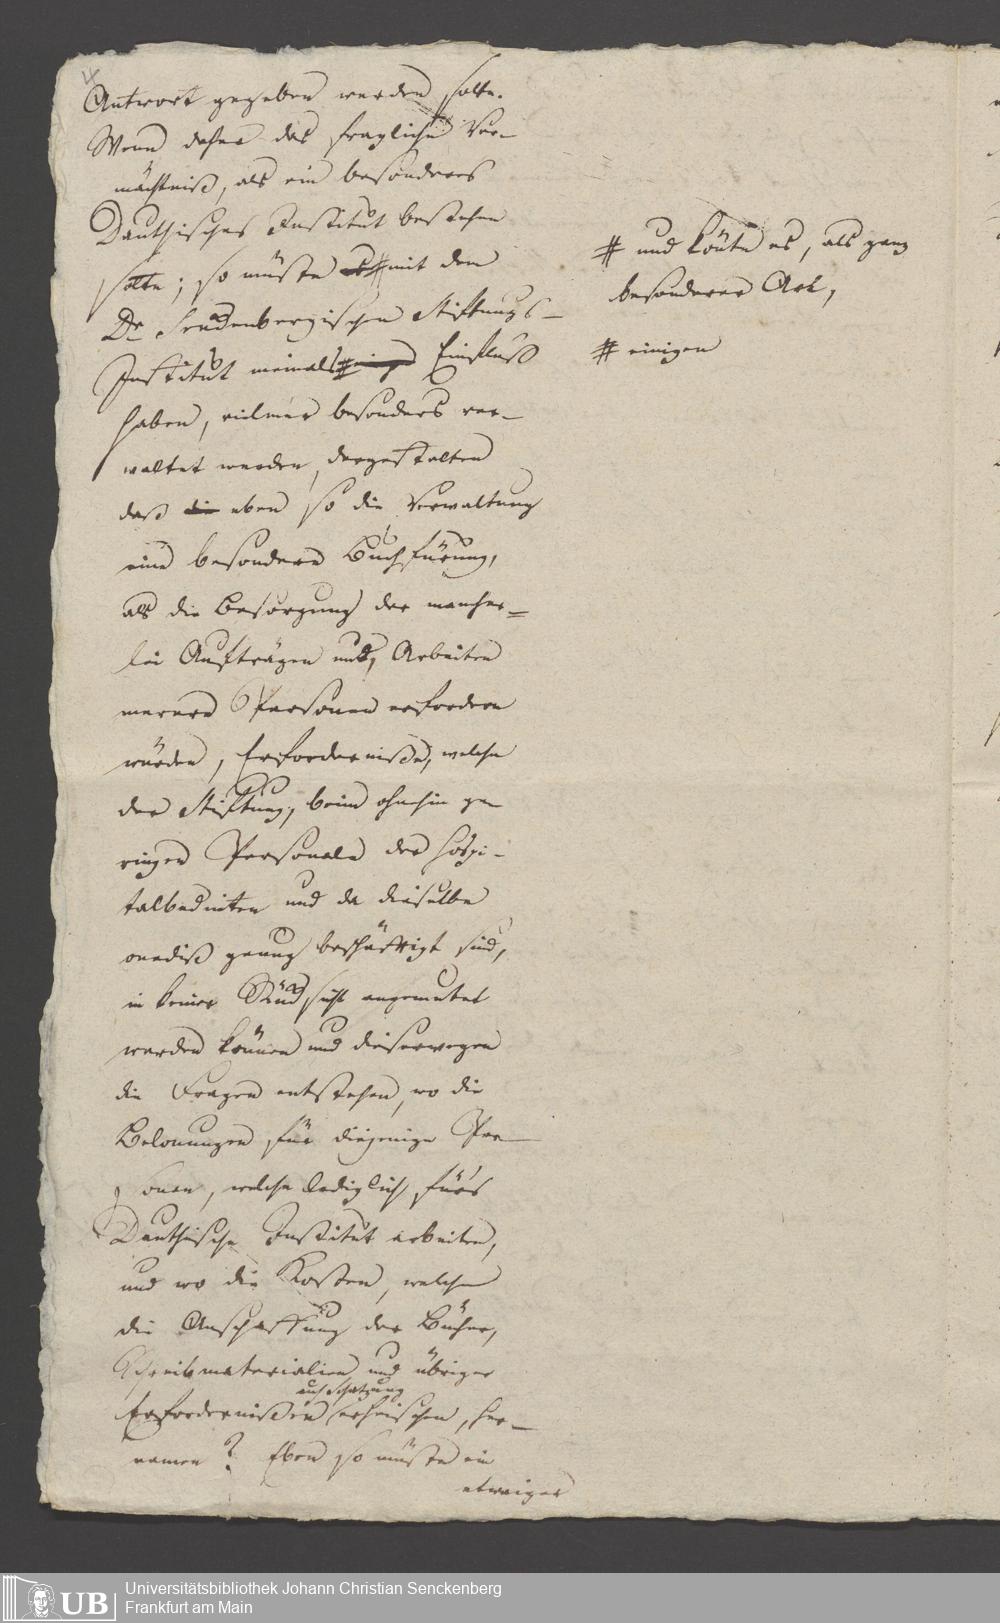 4
Antwort gegeben werden solte.
Wenn daher das fragliche Ver-
mächtniß, als ein besonderes
Dauthisches Institut bestehen
solte; so müste # mit dem
Dr Senckenbergischen Stiftungs-
Institut niemals # Einfluß
haben, vielmer besonders ver-
waltet werden, dergestalten
daß die eben so die Verwaltung
eine besondere Buchfürung,
als die Besorgung der mancher-
lei Aufträgen und Arbeiten
merere Personen erfordern
würden, Erforderniße, welche
der Stiftung, beim ohnehin ge
ringen Personale der Hospi-
talbedienten und da dieselbe
onediß genug beschäftigt sind,
in keiner Rücksicht angemutet
werden können und dieserwegen
die Fragen entstehen, wo die
Belonungen für diejenige Per-
sonen, welche lediglich fürs
Dauthische Institut arbeiten,
und wo die Kosten, welche
die Anschaffung der Bücher,
Schreibmaterialien und übriger
auch Schatzung
Erfordernißen erheischen, her-
namen? Eben so müste ein
etwaiger
# und könte es, als ganz
besonderer Art,
# einigen
UB
Universitätsbibliothek Johann Christian Senckenberg
Frankfurt am Main